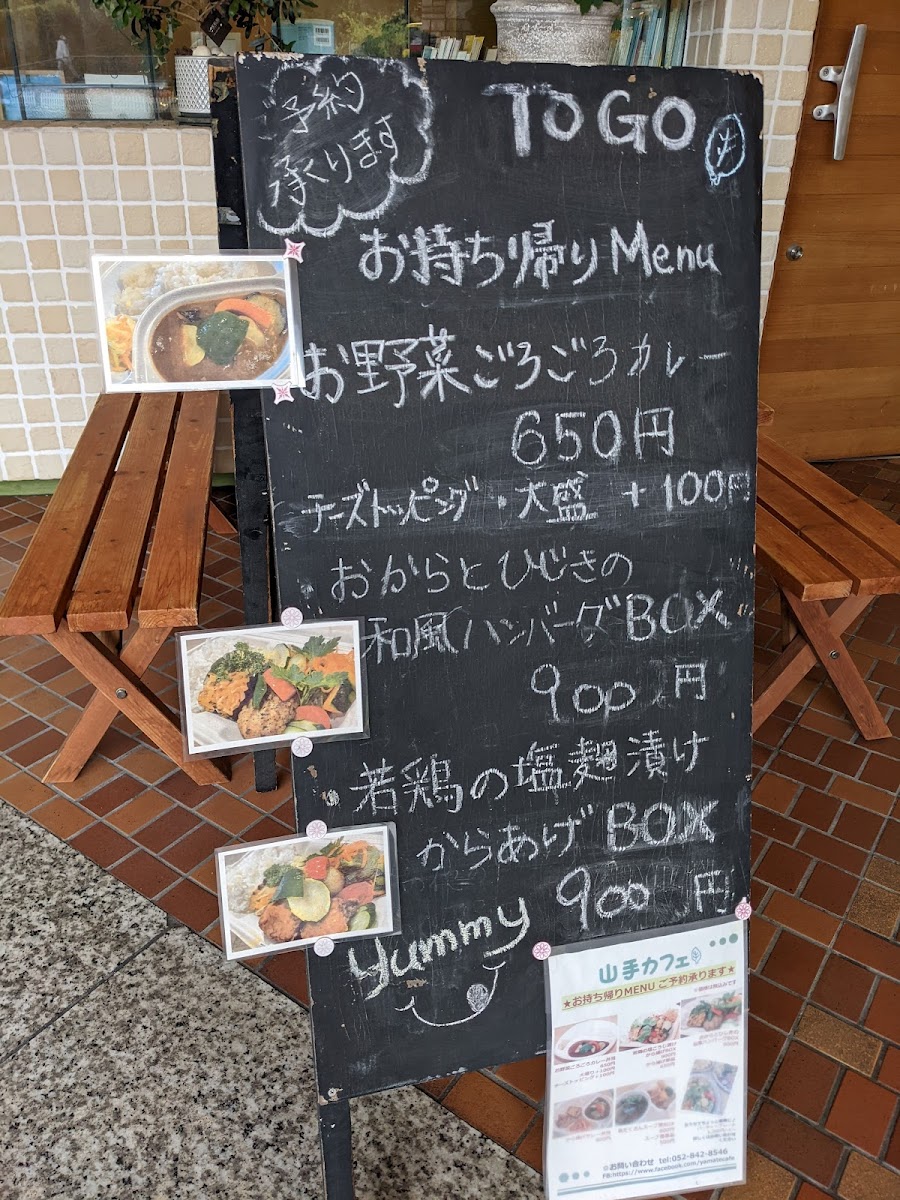 予約
承ります
TO GO
お持ち帰りMenu
お野菜ごろごろカレー
650円
チーズトッピング・大盛 +100円
おからとひじきの
和風ハンバーグBOX
900円
若鶏の塩麹漬け
からあげBOX
900円
Yummy
山手カフェ
★お持ち帰りMENU ご予約承ります★
お野菜ごろごろカレー
※お問い合わせ tel:052-842-8546